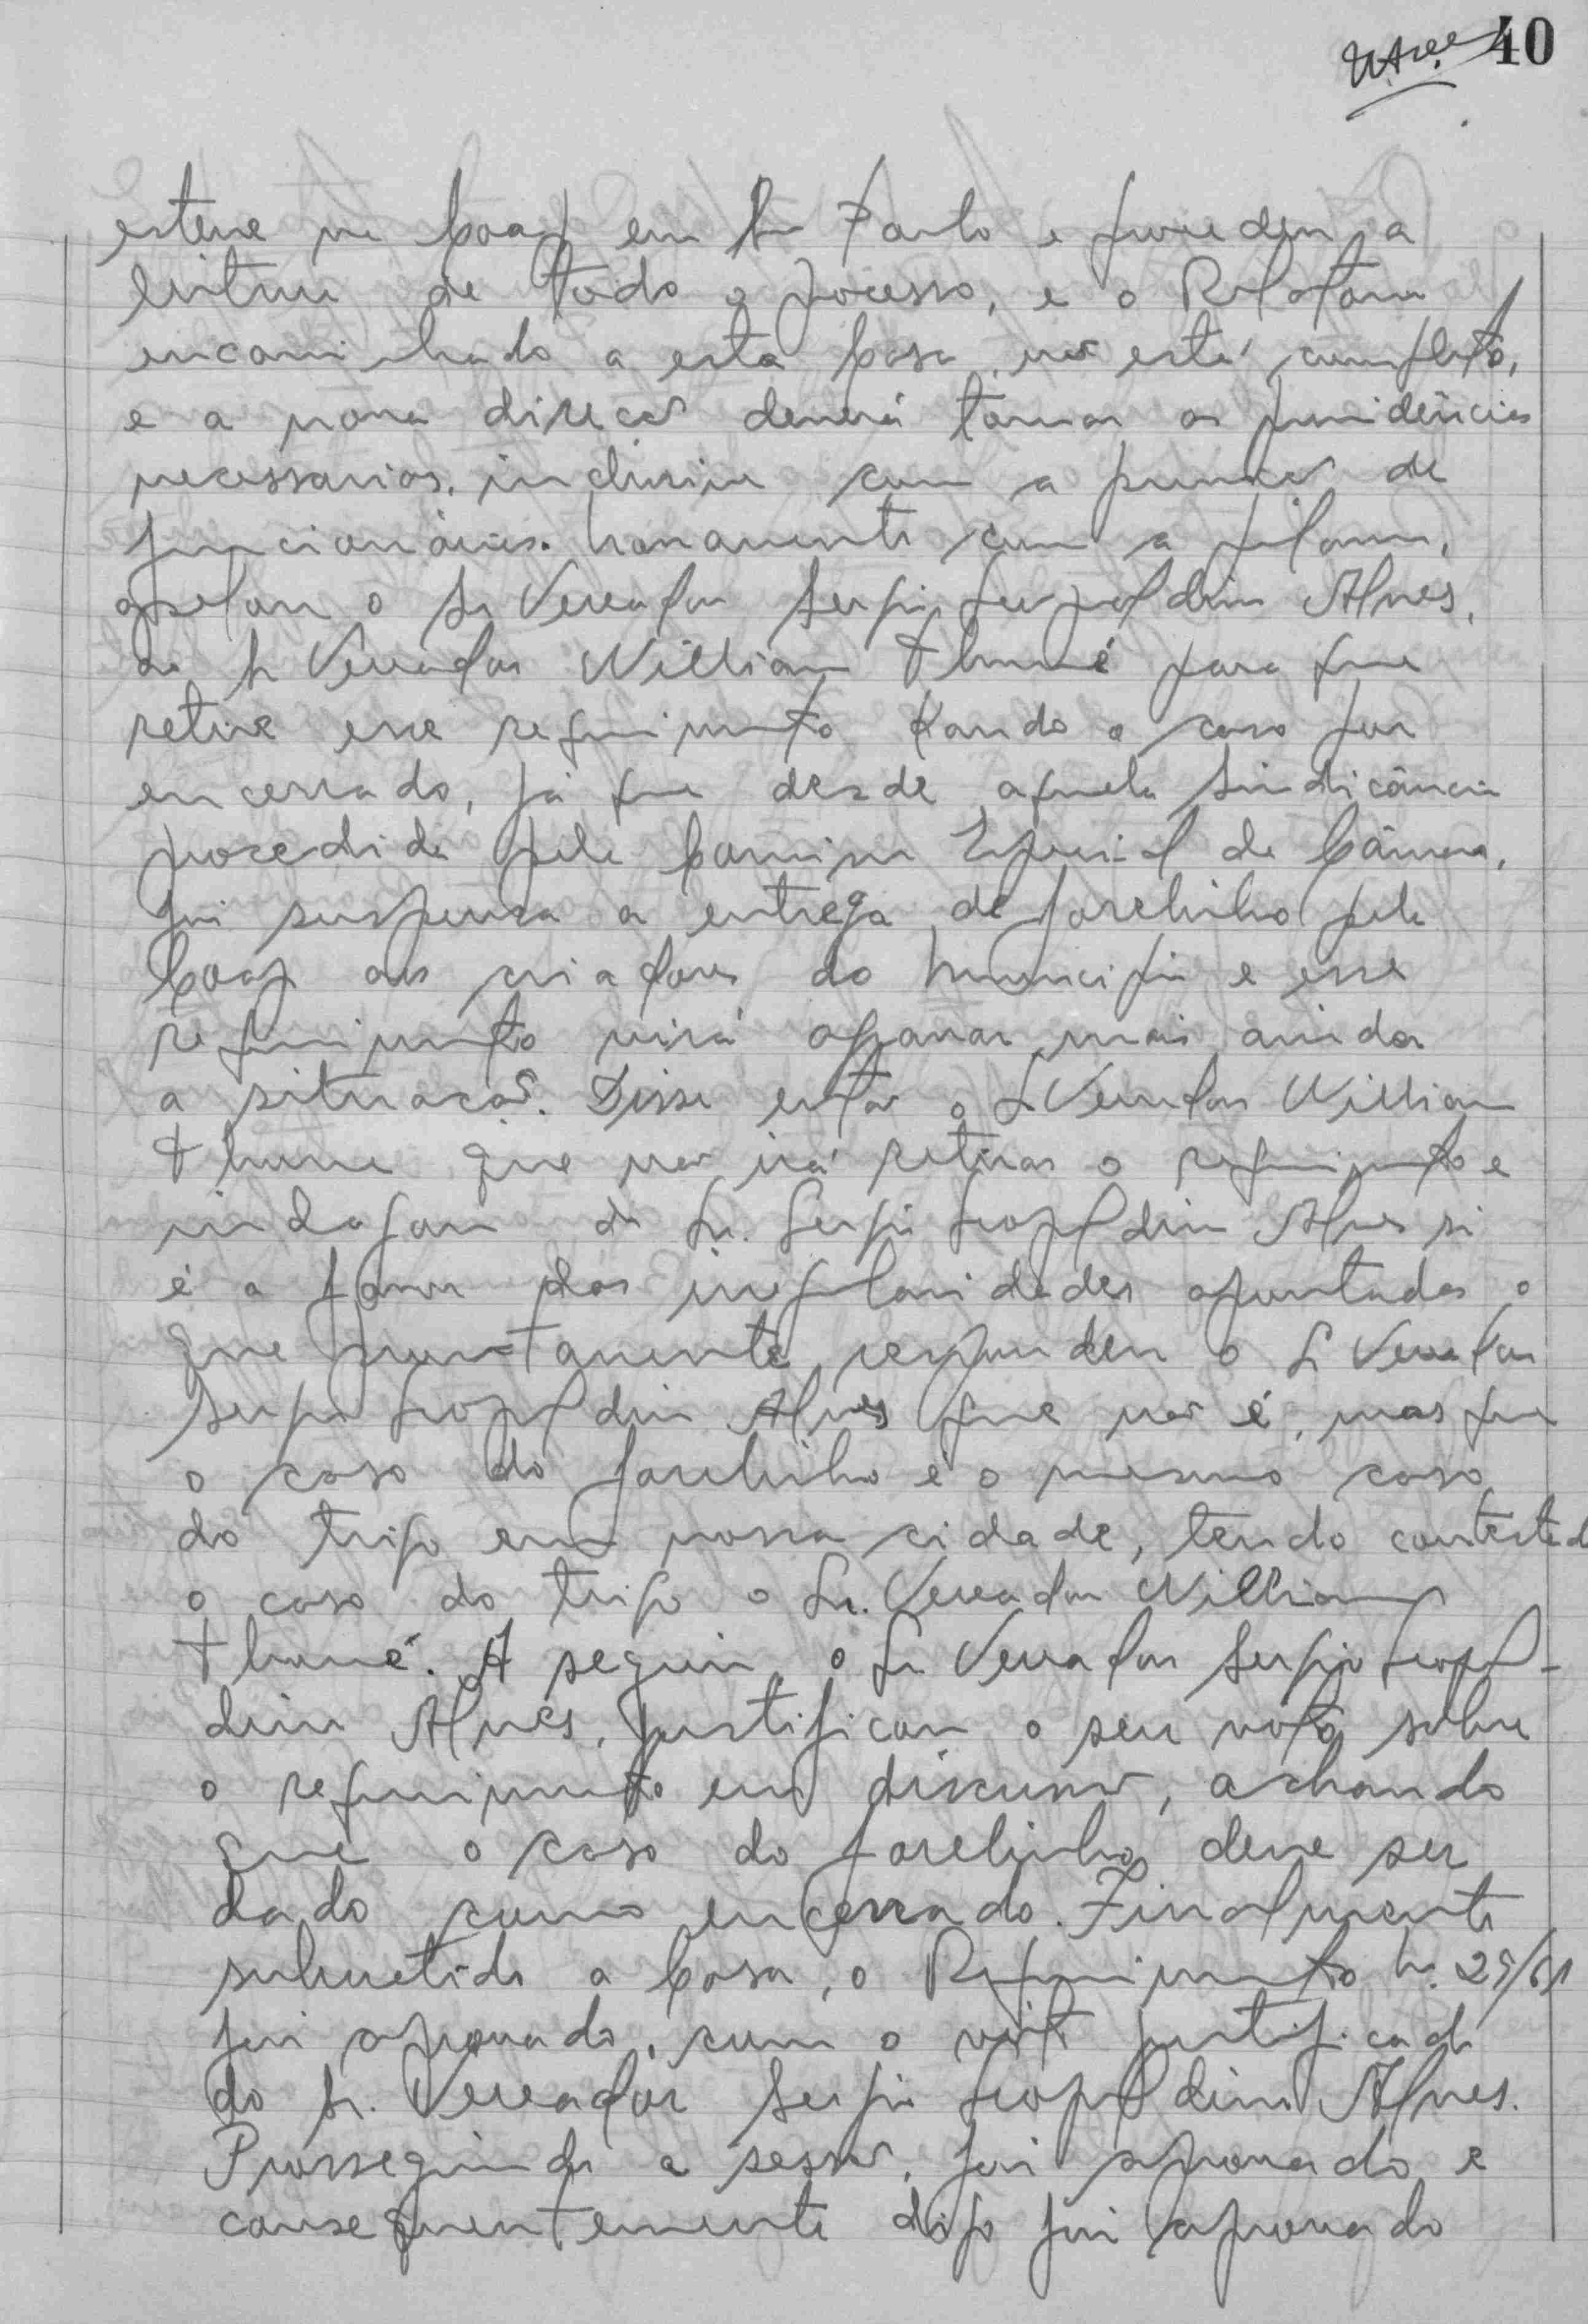 40
esteve na Coap em São Paulo e procedeu a
leitura de todo o processo, e o Relatorio
encaminhado a esta Casa, não está completo,
e a nova direção deverá tomar as providências
necessarias, inclusive com a punição de
funcionários. Novamente com a palavra,
apelou o Sr Vereador Sergio Leopoldino Alves,
ao Sr Vereador William Thomé para que
retire esse requerimento dando o caso por
encerrado, já que desde aquela sindicância
procedida pela Comissão Especial da Câmara,
foi suspensa a entrega de farelinho pela
Coap aos criadores do Municipio e esse
requerimento virá agravar mais ainda
a situação. Disse então o Sr Vereador William
Thomé que não irá retirar o requerimento e
indagou do Sr. Sergio Leopoldino Alves si
é a favor das irregularidades apontadas o
que prontamente respondeu o Sr Vereador
Sergio Leopoldino Alves que não é, mas que
o caso do farelinho é o mesmo caso
do trigo em nossa cidade, tendo contestado
o caso do trigo o Sr. Vereador William
Thomé. A seguir, o Sr Vereador Sergio Leopol-
dino Alves, justificou o seu voto sobre
o requerimento em discussão, achando
que o caso do farelinho deve ser
dado como encerrado. Finalmente
submetido a Casa, o Requerimento n. 29/61
foi aprovado, com o voto justificado
do Sr. Vereador Sergio Leopoldino Alves.
Prosseguindo a sessão, foi aprovado e
consequentemente digo foi aprovado